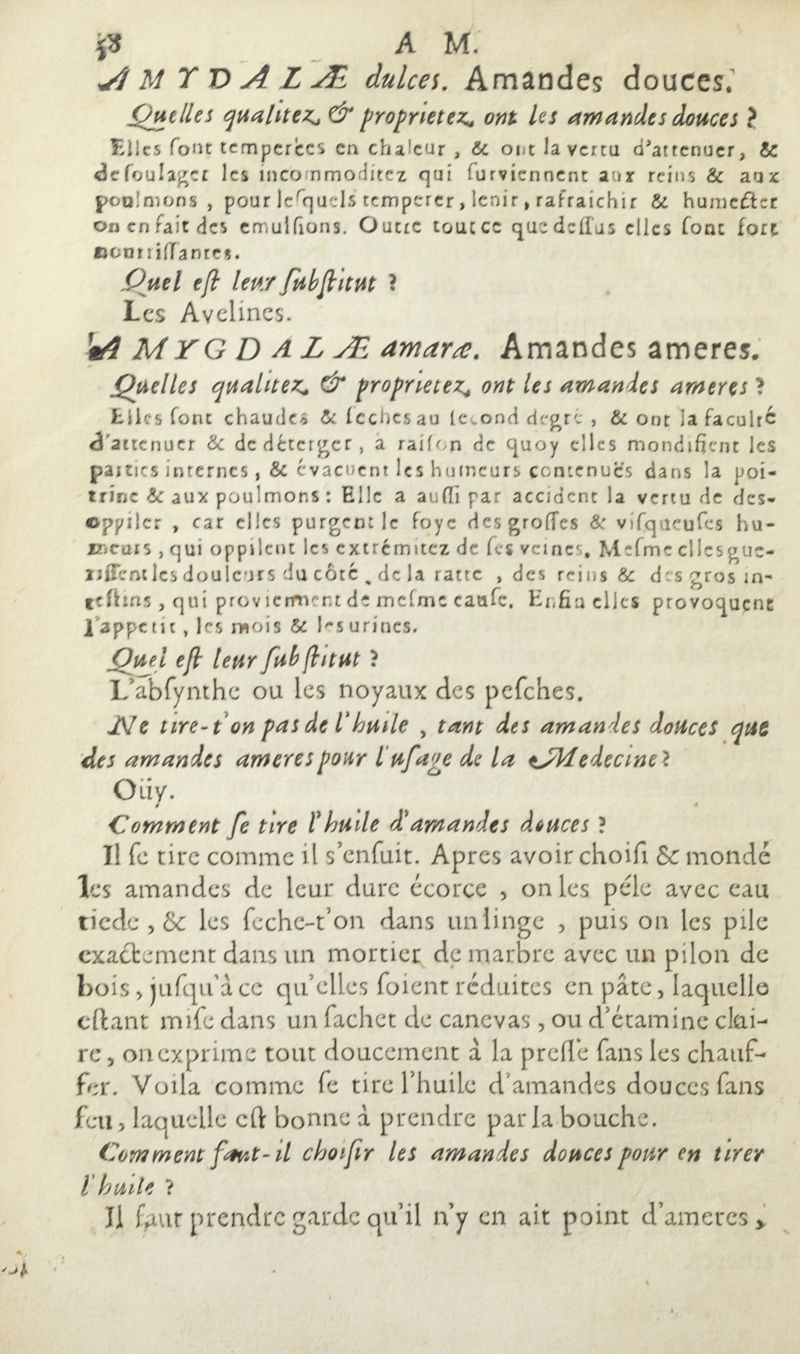 58 A M.
AMYDALÆ dulces. Amandes douces.
Quelles qualitez, & proprietez, ont les amandes douces ?
Elles ſont temperées en chaleur , & ont la vertu d'attenuer, &
de ſoulager les incommoditez qui ſurviennent aux reins & aux
poulmons , pour leſquels temperer, lenir, rafraichir & humecter
on en fait des emulſions. Outre tout ce que deſſus elles ſont fort
nourriſſantes.
Quel eſt leur ſubſtitut ?
Les Avelines.
AMYGDALÆ amaræ. Amandes ameres.
Quelles qualitez, & proprietez, ont les amandes ameres ?
Elles ſont chaudes & ſeches au ſecond degré , & ont la faculté
d'attenuer & de déterger, à raiſon de quoy elles mondifient les
parties internes , & évacuent les humeurs contenuës dans la poi-
trine & aux poulmons : Elle a auſſi par accident la vertu de des-
oppiler , car elles purgent le foye des groſſes & viſqueuſes hu-
meurs , qui oppilent les extrémitez de ſes veines. Meſme elles gue-
riſſent les douleurs du côté , de la ratte , des reins & des gros in-
teſtins , qui proviennent de meſme cauſe. Enfin elles provoquent
l'appetit , les mois & les urines.
Quel eſt leur ſubſtitut ?
L'abſynthe ou les noyaux des peſches.
Ne tire-t'on pas de l'huile , tant des amandes douces que
des amandes ameres pour l'uſage de la Medecine ?
Oüy.
Comment ſe tire l'huile d'amandes douces ?
Il ſe tire comme il s'enſuit. Apres avoir choiſi & mondé
les amandes de leur dure écorce , on les péle avec eau
tiede , & les ſeche-t'on dans un linge , puis on les pile
exactement dans un mortier de marbre avec un pilon de
bois , juſqu'à ce qu'elles ſoient réduites en pâte, laquelle
eſtant miſe dans un ſachet de canevas , ou d'étamine clai-
re , on exprime tout doucement à la preſſe ſans les chauf-
fer. Voila comme ſe tire l'huile d'amandes douces ſans
feu , laquelle eſt bonne à prendre par la bouche.
Comment faut-il choiſir les amandes douces pour en tirer
l'huile ?
Il faut prendre garde qu'il n'y en ait point d'ameres ,